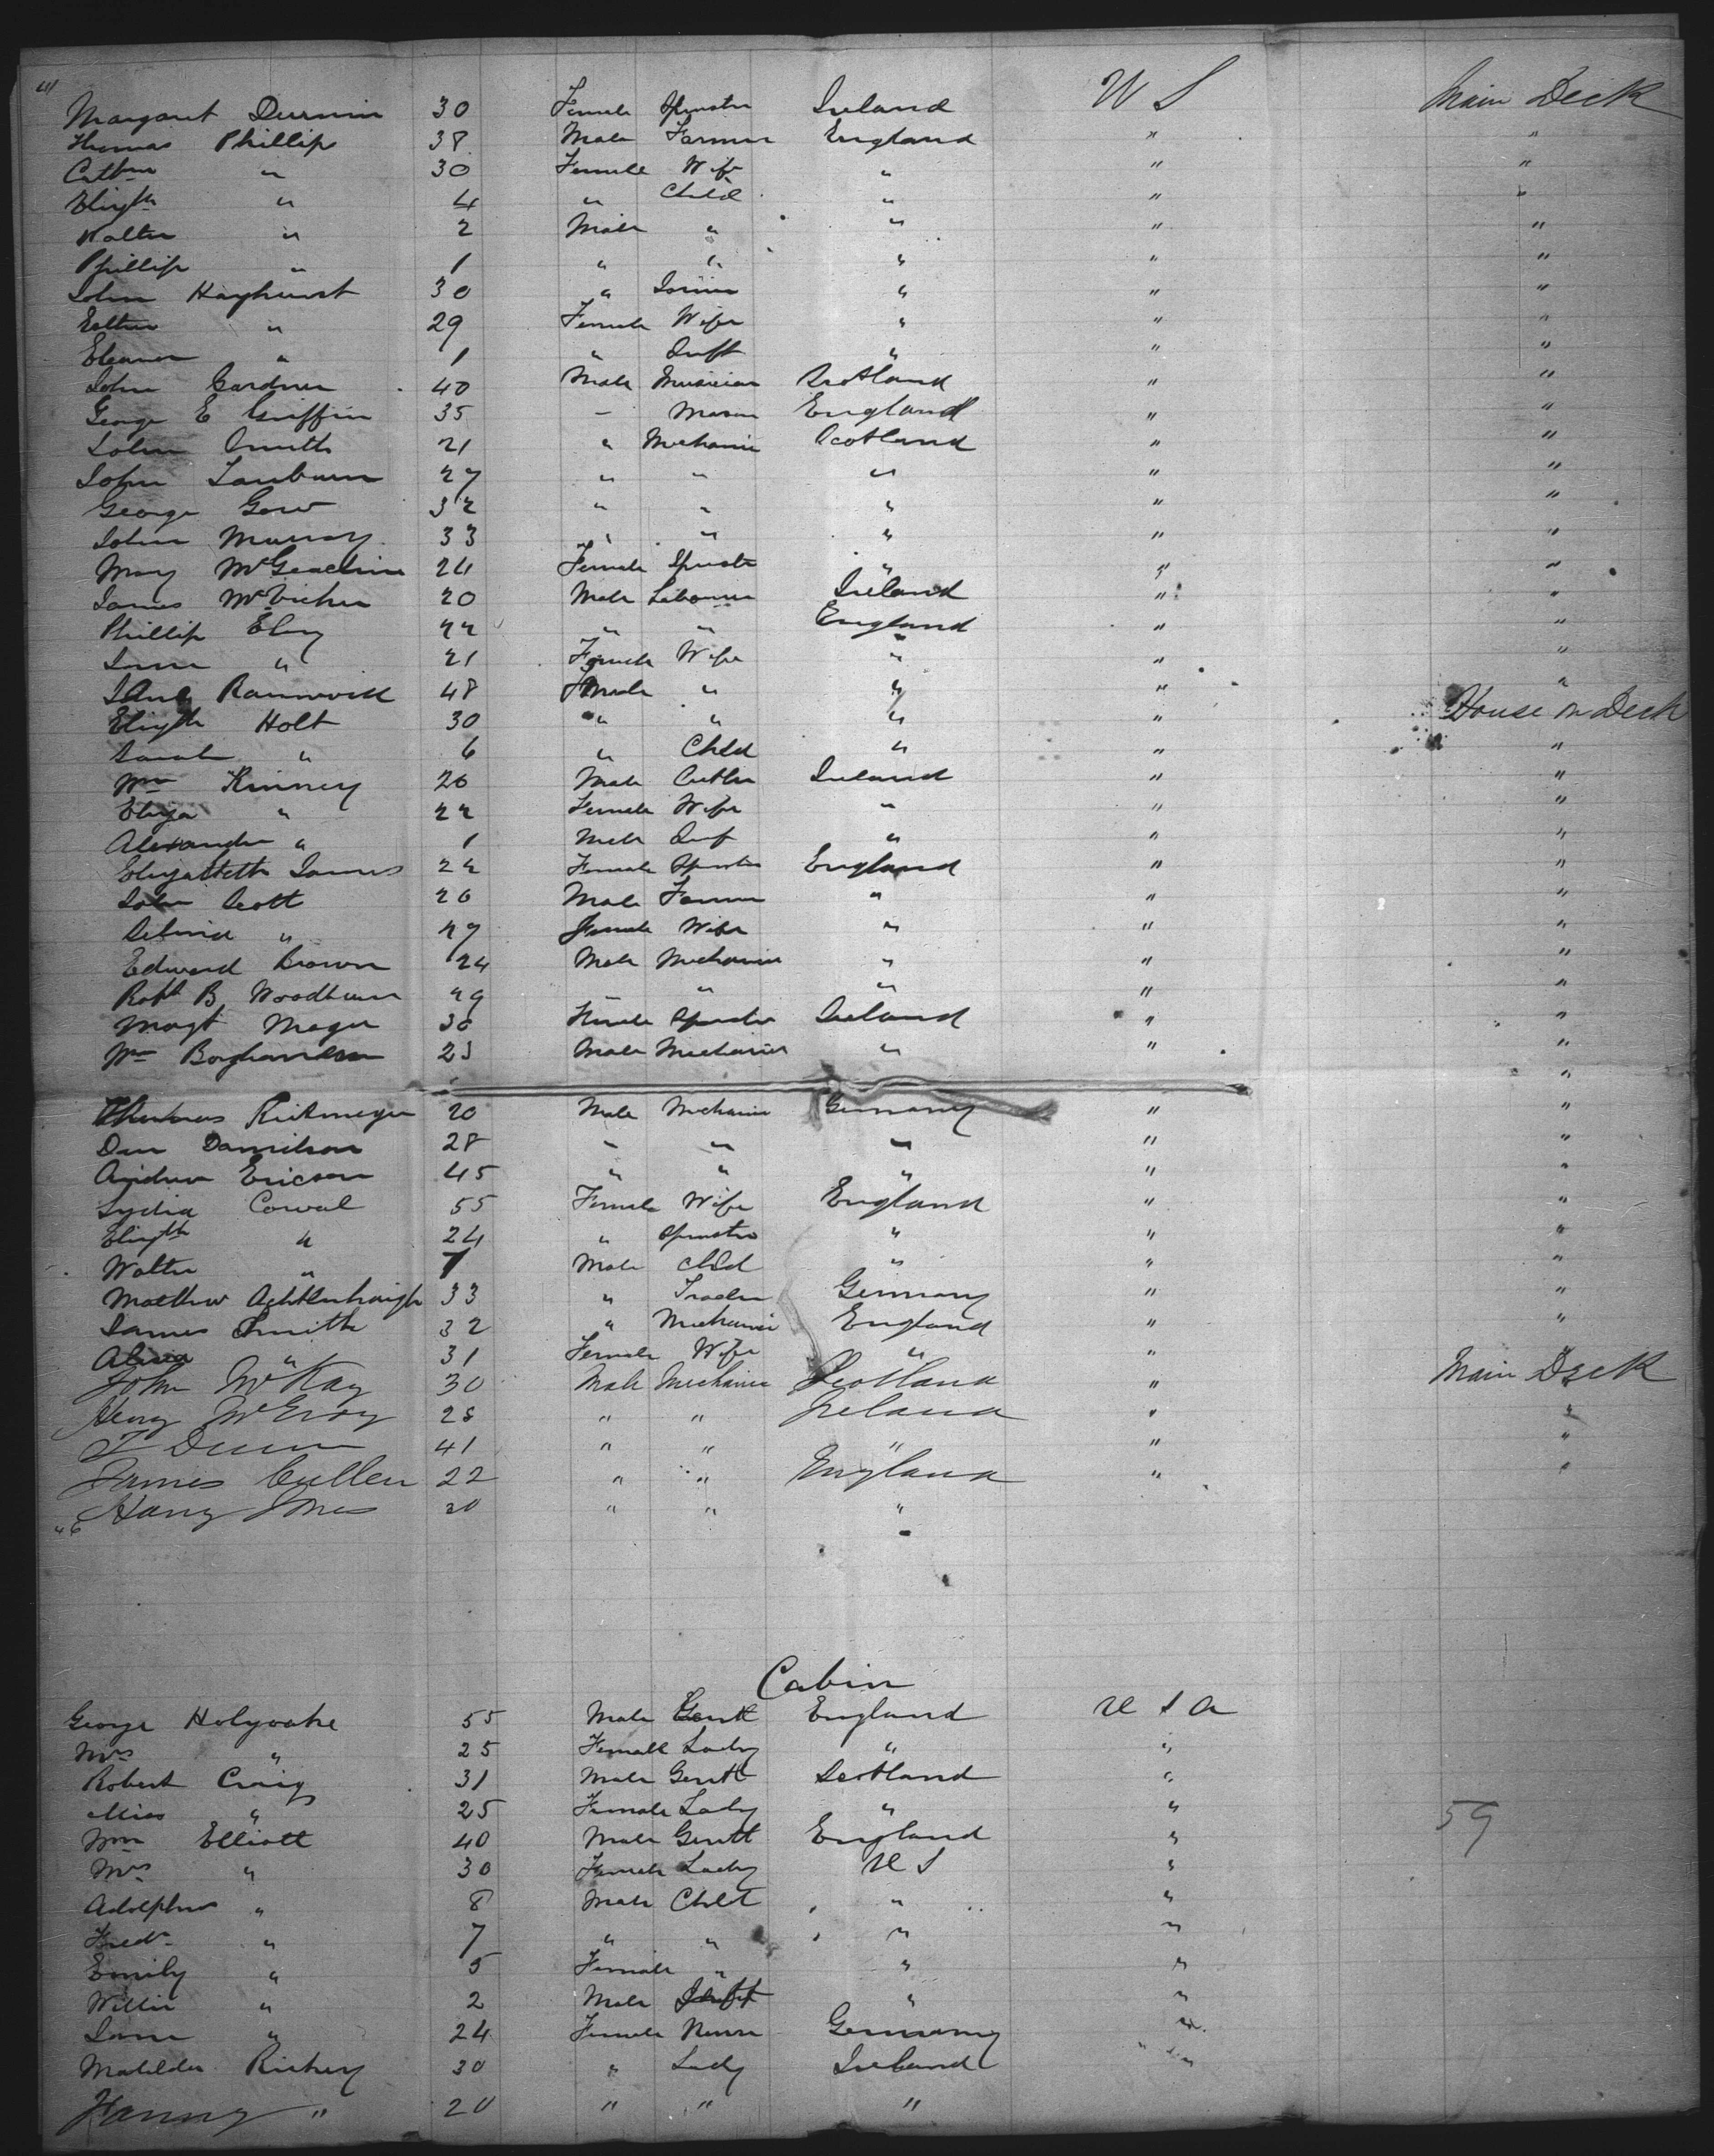 Margaret 30 Female Spinster Ireland U S Main Deck
Thomas Phillips 38 Male Farmer England " "
" 30 Female Wife " " "
Elizth " 4 " Child " " "
Walter " 2 Male " " " "
Phillip " 1 " " " " "
John Hayhurst 30 " Joiner " " "
Esther " 29 Female Wife " " "
Eleanor " 1 " Inft " " "
John Gardner 40 Male Musician Scotland " "
George E Griffin 35 " Mason England " "
John Smith 21 " Mechanic Scotland " "
John 27 " " " " "
George Gow 32 " " " " "
John Murray 33 " " " " "
Mary 24 Female Spinster " " "
James McVicker 20 Male Labourer Ireland " "
Phillip 22 " " England " "
Jane " 21 Female Wife " " "
48 Female " " " "
Elizth Holt 30 " " " " House on Deck
Sarah " 6 " Child " " "
Wm Kinney 26 Male Cutler Ireland " "
Eliza " 22 Female Wife " " "
Alexander " 1 Male Inf " " "
Elizabeth James 22 Female Spinster England " "
John Scott 26 Male Farmer " " "
Selina " 27 Female Wife " " "
Edward Brown 24 Male Mechanic " " "
Robt B Woodburn 29 " " " " "
Margt 30 Female Spinster Ireland " "
Wm 23 Male Mechanic " " "
20 Male Mechanic Germany " "
28 " " " " "
Andrew Ericson 45 " " " " "
Lydia Cowal 55 Female Wife England " "
Elizth " 24 " Spinster " " "
Walter " 7 Male Child " " "
Matthew 33 " Trader Germany " "
James Smith 32 " Mechanic England " "
" 31 Female Wife " "
John McKay 30 Male Mechanic Scotland " Main Deck
Henry McEroy 25 " " Ireland " "
T Dunn 41 " " " " "
James Cullen 22 " " England " "
46 Harry Jones 20 " " "
Cabin
George Holyoake 55 Male Gentl England U S A
Mrs " 25 Female Lady " "
Robert Craig 31 Male Gentl Scotland "
Miss " 25 Female Lady " " 59
Wm Elliott 40 Male Gentl England "
Mrs " 30 Female Lady U S "
Adolphus " 8 Male Child " "
Fredk " 7 " " " "
Emily " 5 Female " " "
Willie " 2 Male Inft " "
Jane " 24 Female Nurse Germany "
Matilda Richey 30 " Lady Ireland "
Fanny " 20 " " "